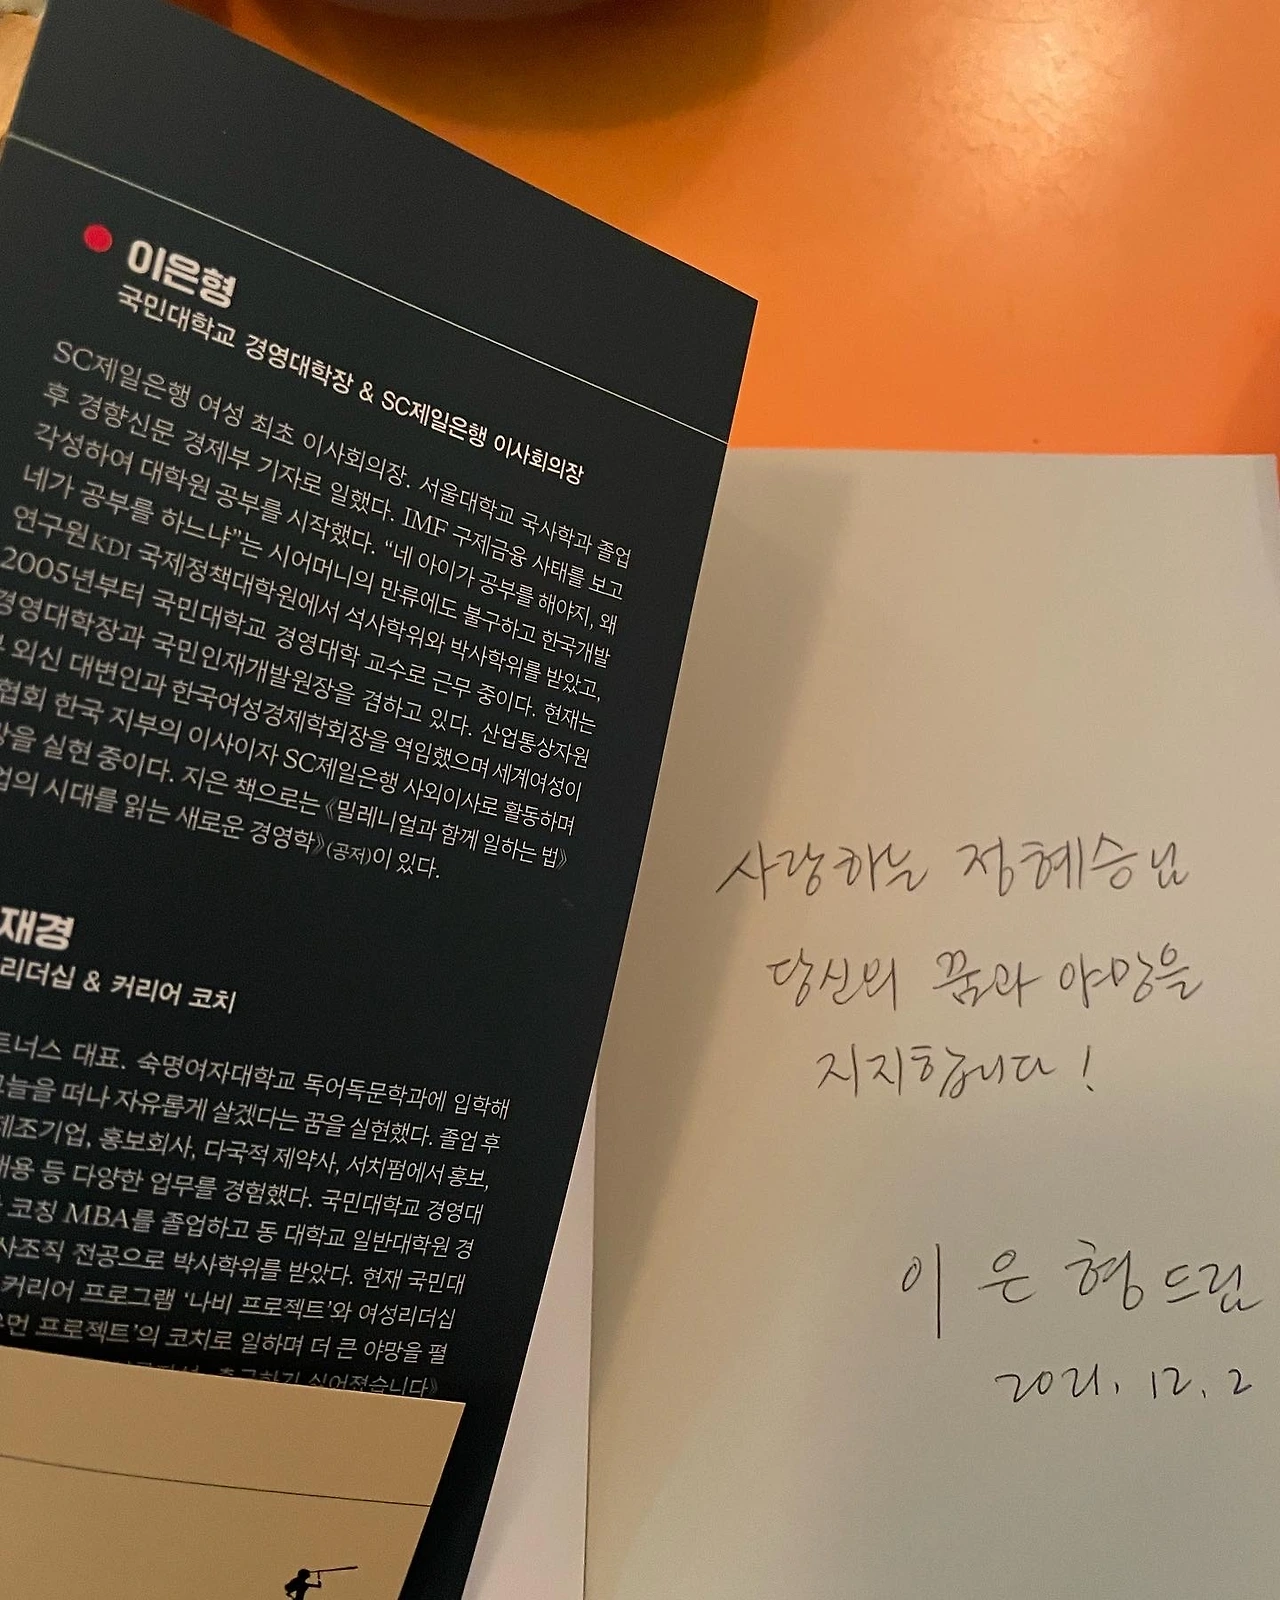 이은형
국민대학교 경영대학장 & SC제일은행 이사회의장
SC제일은행 여성 최초 이사회의장. 서울대학교 국사학과 졸업
후 경향신문 경제부 기자로 일했다. IMF 구제금융 사태를 보고
각성하여 대학원 공부를 시작했다. “네 아이가 공부를 해야지, 왜
네가 공부를 하느냐”는 시어머니의 만류에도 불구하고 한국개발
연구원KDI 국제정책대학원에서 석사학위와 박사학위를 받았고,
2005년부터 국민대학교 경영대학 교수로 근무 중이다. 현재는
경영대학장과 국민인재개발원장을 겸하고 있다. 산업통상자원
외신 대변인과 한국여성경제학회장을 역임했으며 세계여성이
협회 한국 지부의 이사이자 SC제일은행 사외이사로 활동하며
망을 실현 중이다. 지은 책으로는 《밀레니얼과 함께 일하는 법》
업의 시대를 읽는 새로운 경영학》(공저)이 있다.
재경
리더십 & 커리어 코치
트너스 대표. 숙명여자대학교 독어독문학과에 입학해
그늘을 떠나 자유롭게 살겠다는 꿈을 실현했다. 졸업 후
제조기업, 홍보회사, 다국적 제약사, 서치펌에서 홍보,
채용 등 다양한 업무를 경험했다. 국민대학교 경영대
코칭 MBA를 졸업하고 동 대학교 일반대학원 경
사조직 전공으로 박사학위를 받았다. 현재 국민대
커리어 프로그램 ‘나비 프로젝트’와 여성리더십
우먼 프로젝트’의 코치로 일하며 더 큰 야망을 펼
출근하기 싫어졌습니다》
사랑하는 정혜승님
당신의 꿈과 야망을
지지합니다!
이 은 형 드림
2021. 12. 2